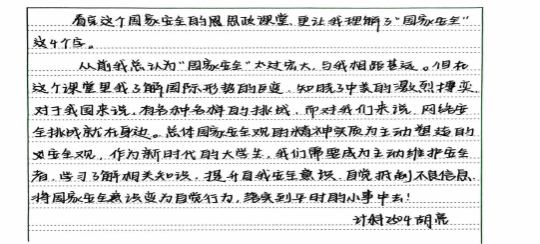 看完这个国家安全的展思政课堂，更让我理解了“国家安全”
这4个字。
从前我总认为“国家安全”太过宏大，与我相距甚远。但在
这个课堂里我了解国际形势的巨变，知晓了中美的激烈博弈，
对于我国来说，有各种各样的挑战，而对我们来说，网络安
全挑战就在身边。总体国家安全观的精神实质为主动塑造的
安全观，作为新时代的大学生，我们需要成为主动维护安全
者，学习了解相关知识，提升自我安全意识，自觉抵制不良信息，
将国家安全意识变为自觉行为，落实到平时的小事中去！
计科2504 胡亮